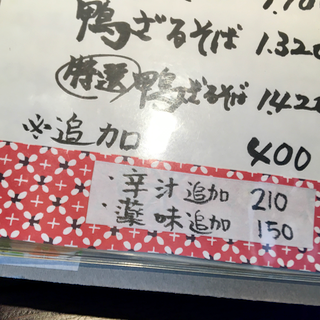 鴨ざるそば 1.320
特選 鴨ざるそば 1.42
※追加 400
・辛汁追加 210
・薬味追加 150